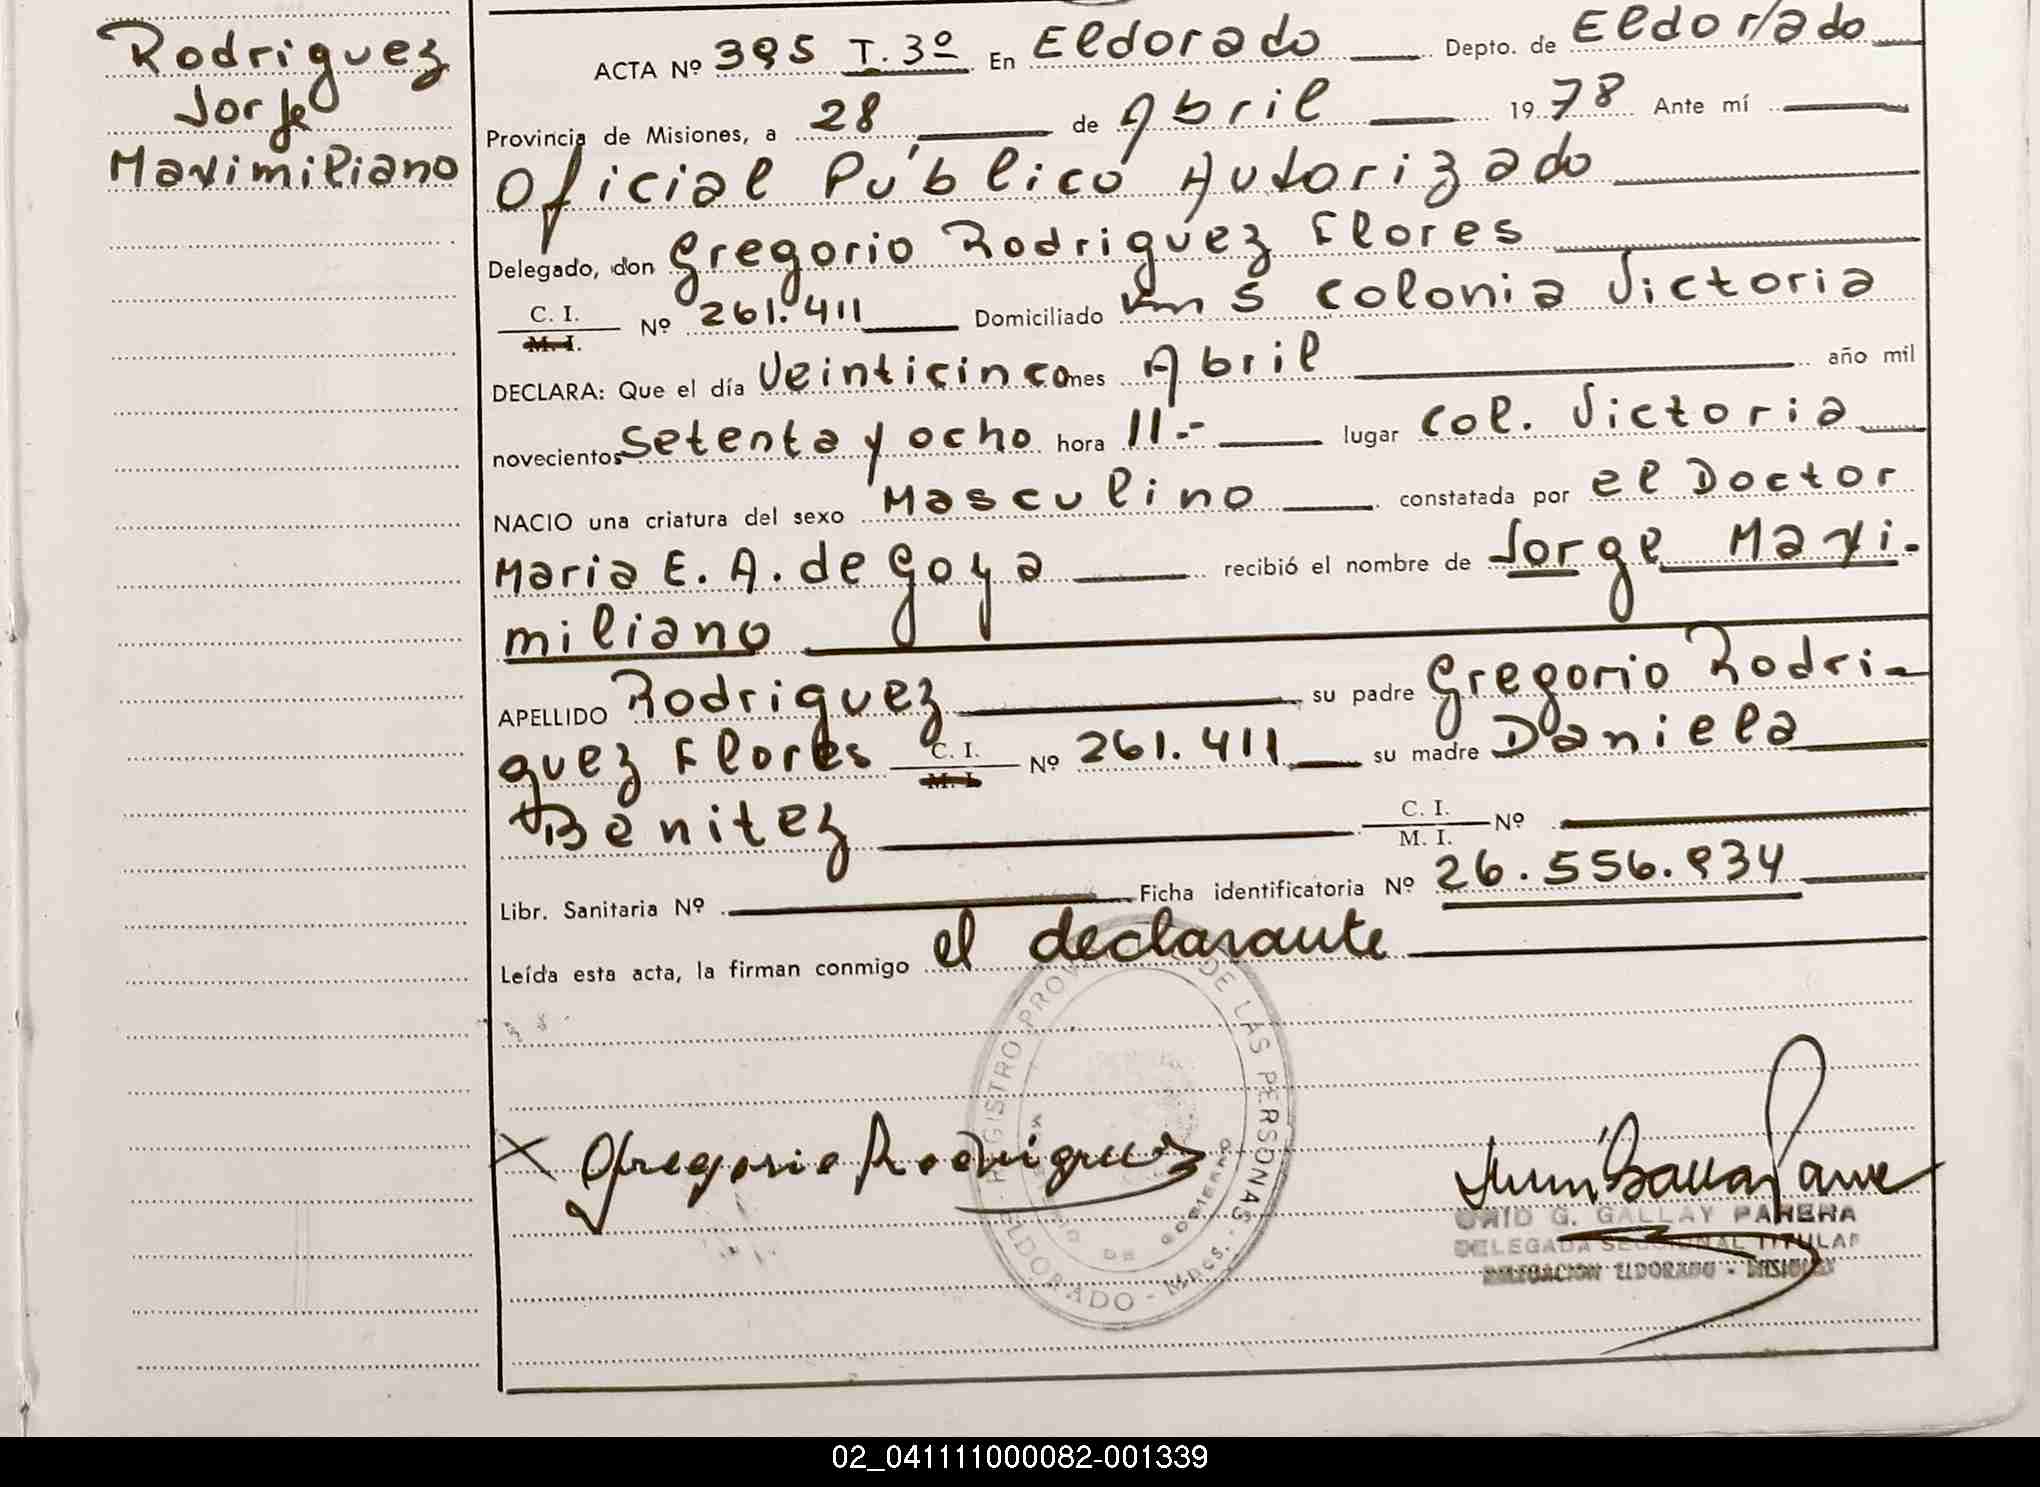 Rodriguez
Jorje
Maximiliano
ACTA Nº 395 T. 3º En Eldorado Depto. de Eldorado
Provincia de Misiones, a 28 de Abril 1978 Ante mí
Oficial Público Autorizado
Delegado, don Gregorio Rodriguez Flores
C. I. M. I. Nº 261.411 Domiciliado Km 5 Colonia Victoria
DECLARA: Que el día Veinticinco mes Abril año mil
novecientos Setenta y ocho hora 11.- lugar Col. Victoria
NACIO una criatura del sexo Masculino constatada por el Doctor
Maria E. A. de Goya recibió el nombre de Jorge Maxi-
miliano
APELLIDO Rodriguez su padre Gregorio Rodri-
guez Flores C. I. M. I. Nº 261.411 su madre Daniela
Benitez C. I. M. I. Nº
Libr. Sanitaria Nº Ficha identificatoria Nº 26.556.934
Leída esta acta, la firman conmigo el declarante
REGISTRO DE LAS PERSONAS
DE GOBIERNO
ELDORADO - Mnes.
X Gregorio Rodriguez
G. GALLAY PARERA
DELEGADA SECCIONAL TITULAR
DELEGACION ELDORADO - MISIONES
02_041111000082-001339